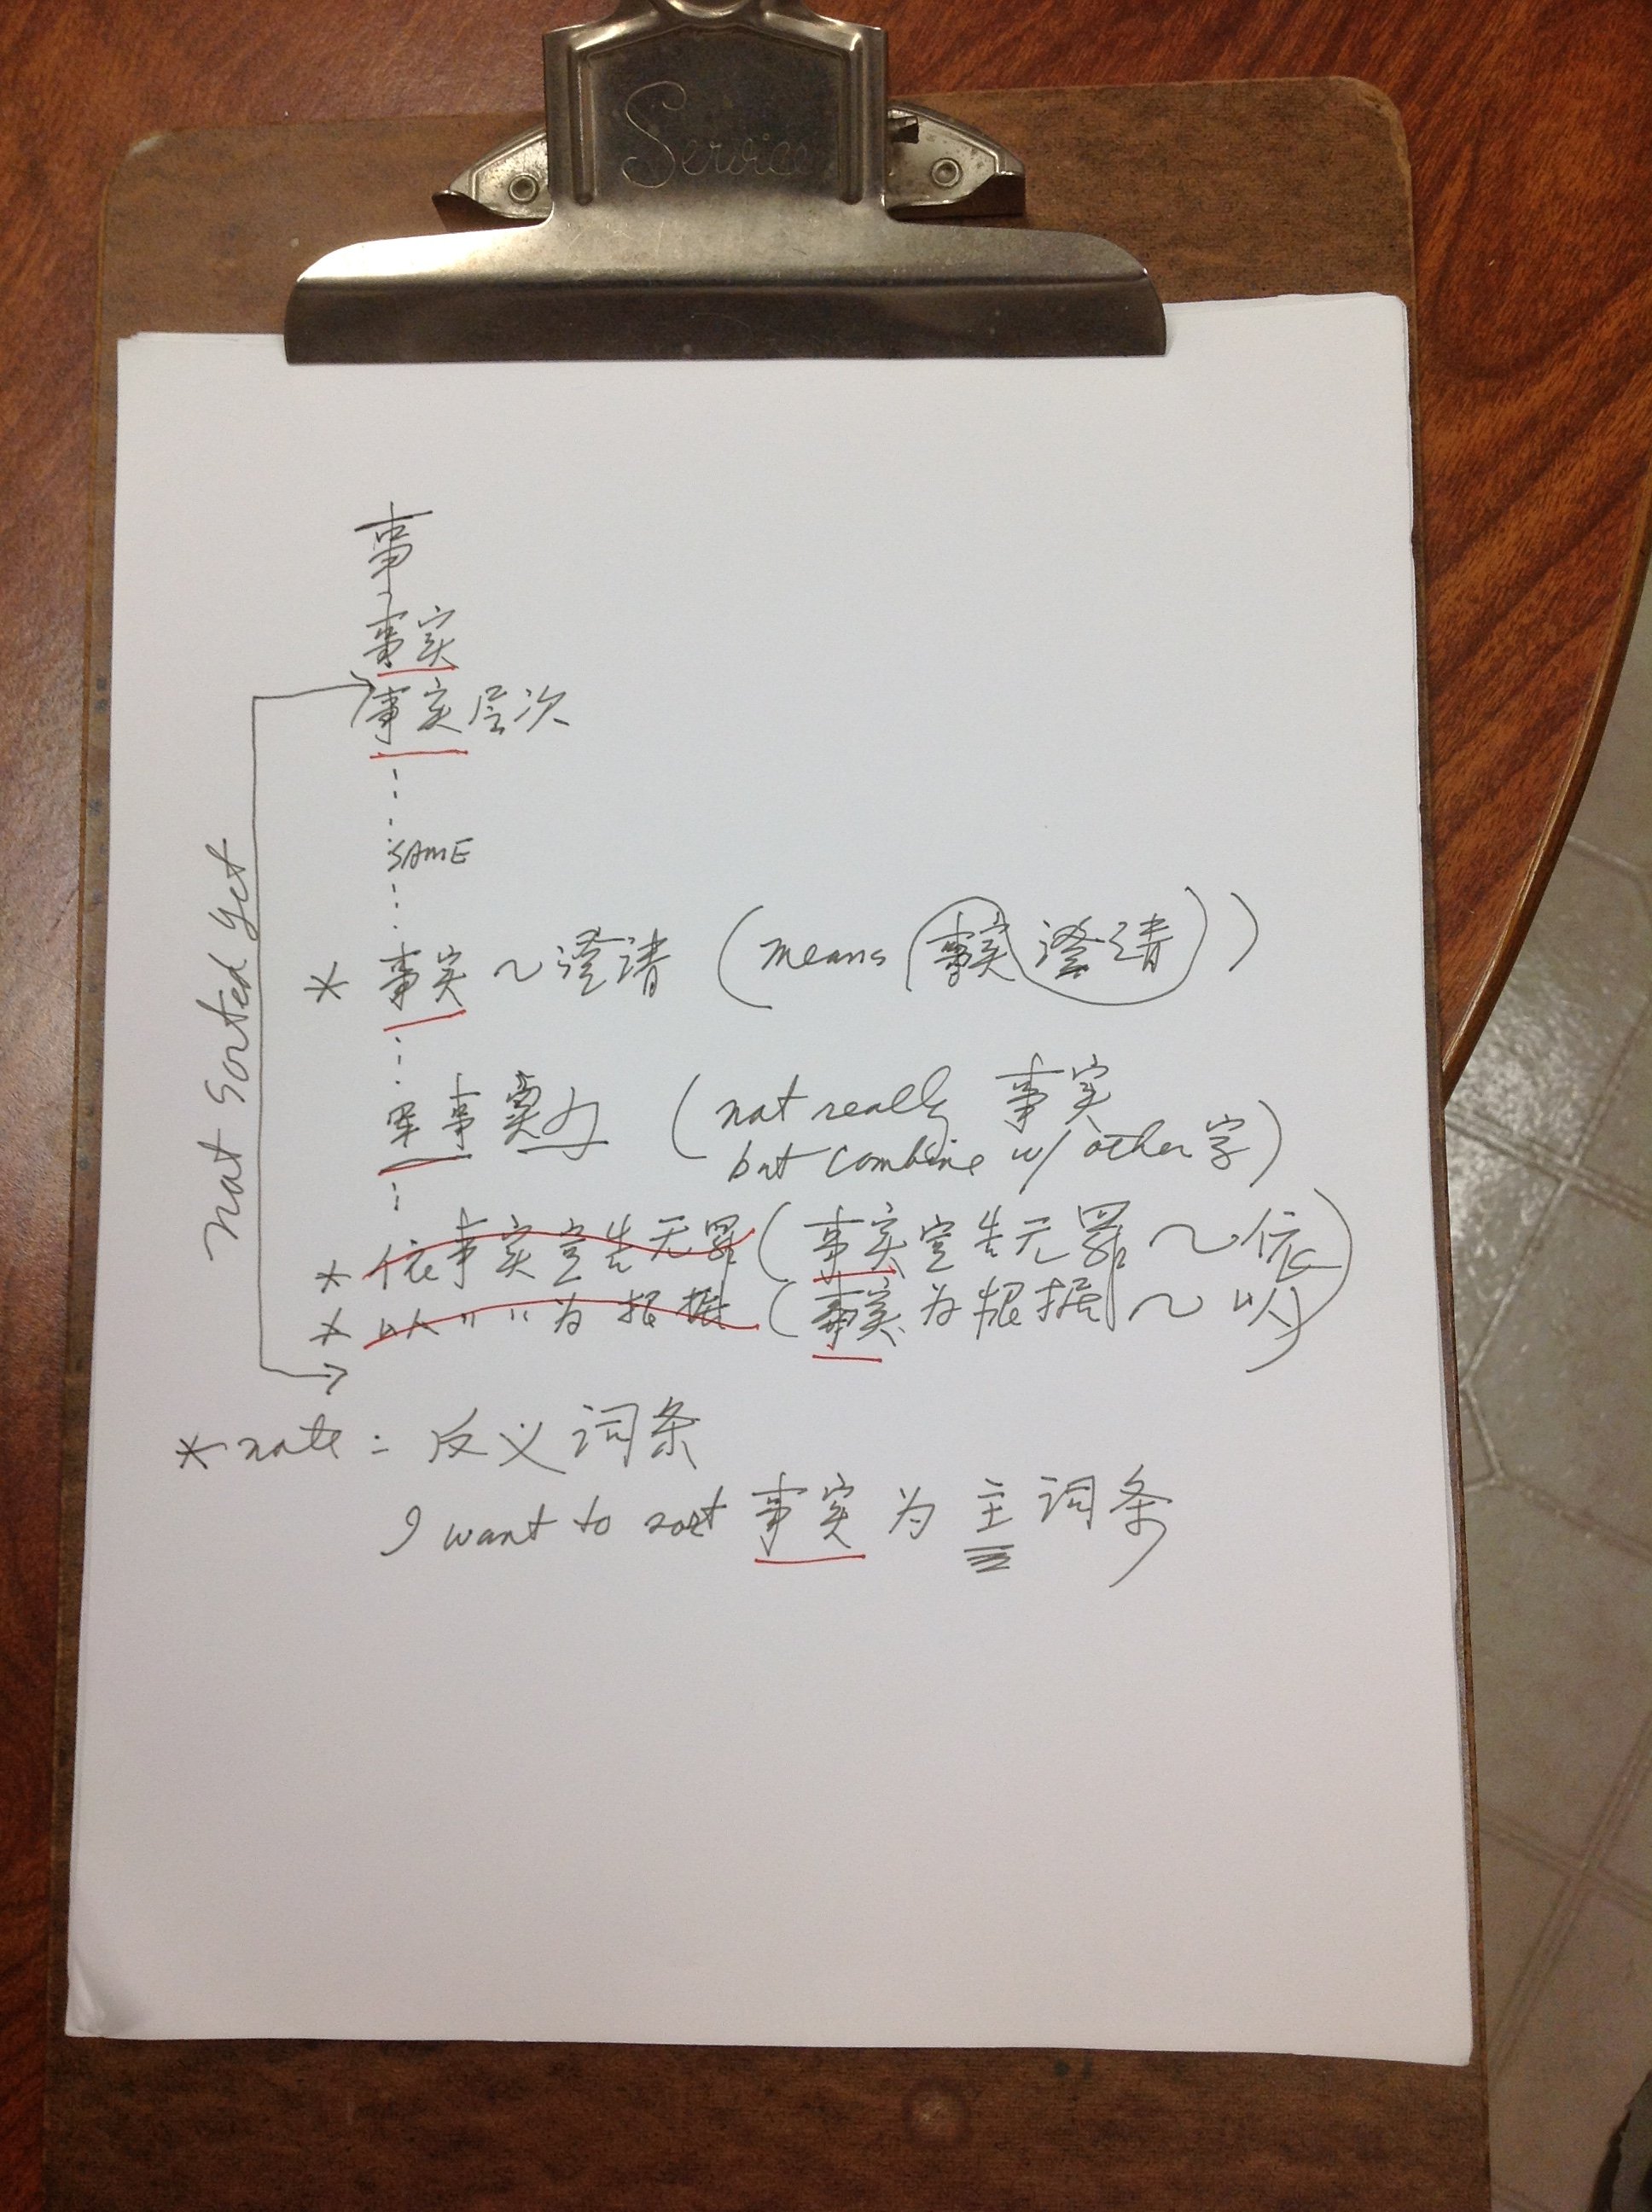 Service
事
事实
事实层次
SAME
* 事实~澄清 (means (事实澄清))
军事实力 (not really 事实
but combine w/ other 字)
* 依事实宣告无罪 (事实宣告无罪~依)
* 以 " " 为根据 (事实为根据~以)
not sorted yet
* note: 反义词条
I want to sort 事实 为 主词条